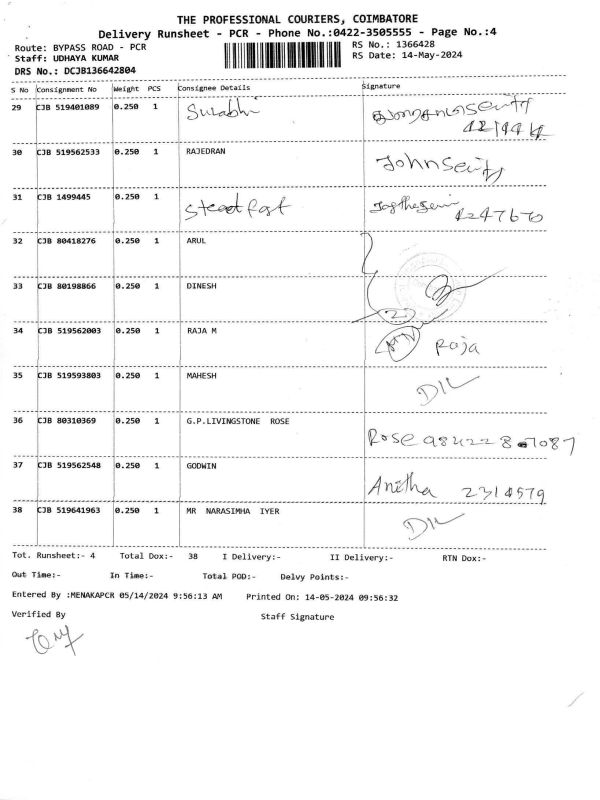 THE PROFESSIONAL COURIERS, COIMBATORE
Delivery Runsheet - PCR - Phone No.:0422-3505555 - Page No.:4
Route: BYPASS ROAD - PCR
RS No.: 1366428
Staff: UDHAYA KUMAR
RS Date: 14-May-2024
DRS No.: DCJB136642804
S No Consignment No Weight PCS Consignee Details Signature
29 CJB 519401089 0.250 1 Surabhi
30 CJB 519562533 0.250 1 RAJEDRAN John
31 CJB 1499445 0.250 1 Steadfast 4247670
32 CJB 80418276 0.250 1 ARUL
33 CJB 80198866 0.250 1 DINESH
34 CJB 519562003 0.250 1 RAJA M Raja
35 CJB 519593803 0.250 1 MAHESH
36 CJB 80310369 0.250 1 G.P.LIVINGSTONE ROSE Rose
37 CJB 519562548 0.250 1 GODWIN Anitha 2314579
38 CJB 519641963 0.250 1 MR NARASIMHA IYER
Tot. Runsheet:- 4 Total Dox:- 38 I Delivery:- II Delivery:- RTN Dox:-
Out Time:- In Time:- Total POD:- Delvy Points:-
Entered By :MENAKAPCR 05/14/2024 9:56:13 AM Printed On: 14-05-2024 09:56:32
Verified By Staff Signature